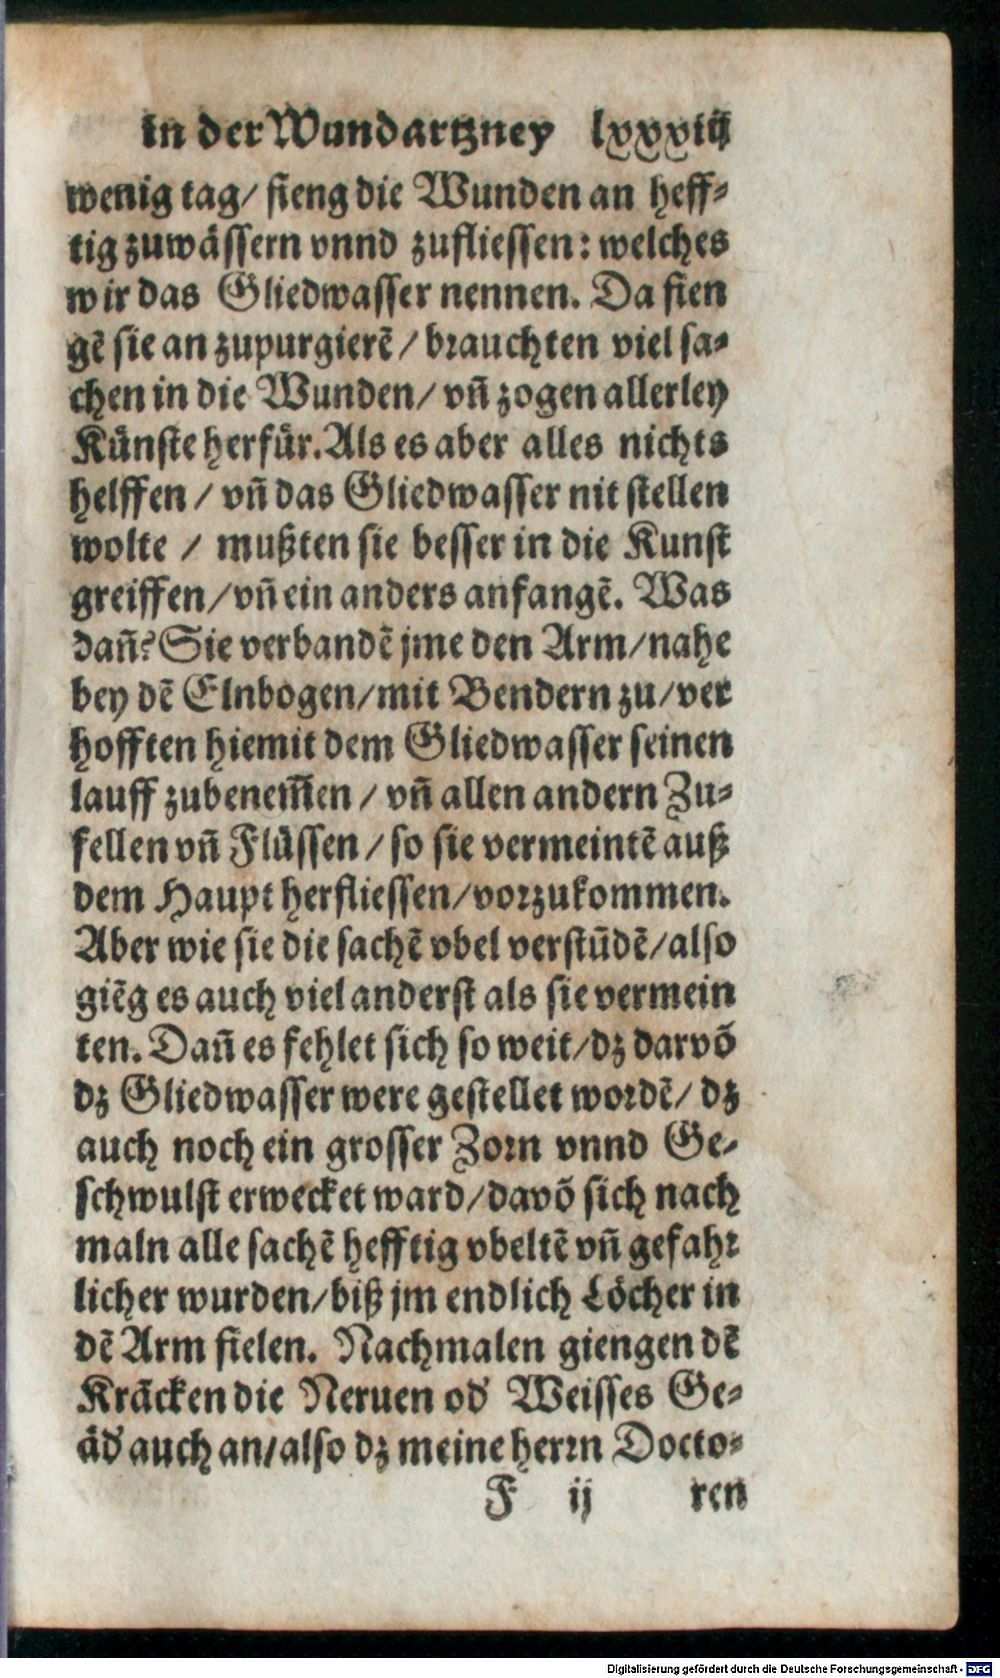 in der Wundartzney lxxxiij
wenig tag/ fieng die Wunden an heff⸗
tig zuwässern vnnd zufliessen: welches
wir das Gliedwasser nennen. Da fien
gē sie an zupurgierē/ brauchten viel sa⸗
chen in die Wunden/ vñ zogen allerley
Künste herfür. Als es aber alles nichts
helffen/ vñ das Gliedwasser nit stellen
wolte/ mußten sie besser in die Kunst
greiffen/ vñ ein anders anfangē. Was
dañ? Sie verbandē jme den Arm/ nahe
bey dē Elnbogen/ mit Bendern zu/ ver
hofften hiemit dem Gliedwasser seinen
lauff zubenem̃en/ vñ allen andern Zu⸗
fellen vñ Flüssen/ so sie vermeintē auß
dem Haupt herfliessen/ vorzukommen.
Aber wie sie die sachē vbel verstūdē/ also
giēg es auch viel anderst als sie vermein
ten. Dañ es fehlet sich so weit/ dz darvō
dz Gliedwasser were gestellet wordē/ dz
auch noch ein grosser Zorn vnnd Ge⸗
schwulst erwecket ward/ davō sich nach
maln alle sachē hefftig vbeltē vñ gefahr
licher wurden/ biß jm endlich Löcher in
dē Arm fielen. Nachmalen giengen dē
Krācken die Neruen od' Weisses Ge⸗
äd' auch an/ also dz meine herrn Docto⸗
F ij ren
Digitalisierung gefördert durch die Deutsche Forschungsgemeinschaft - DFG